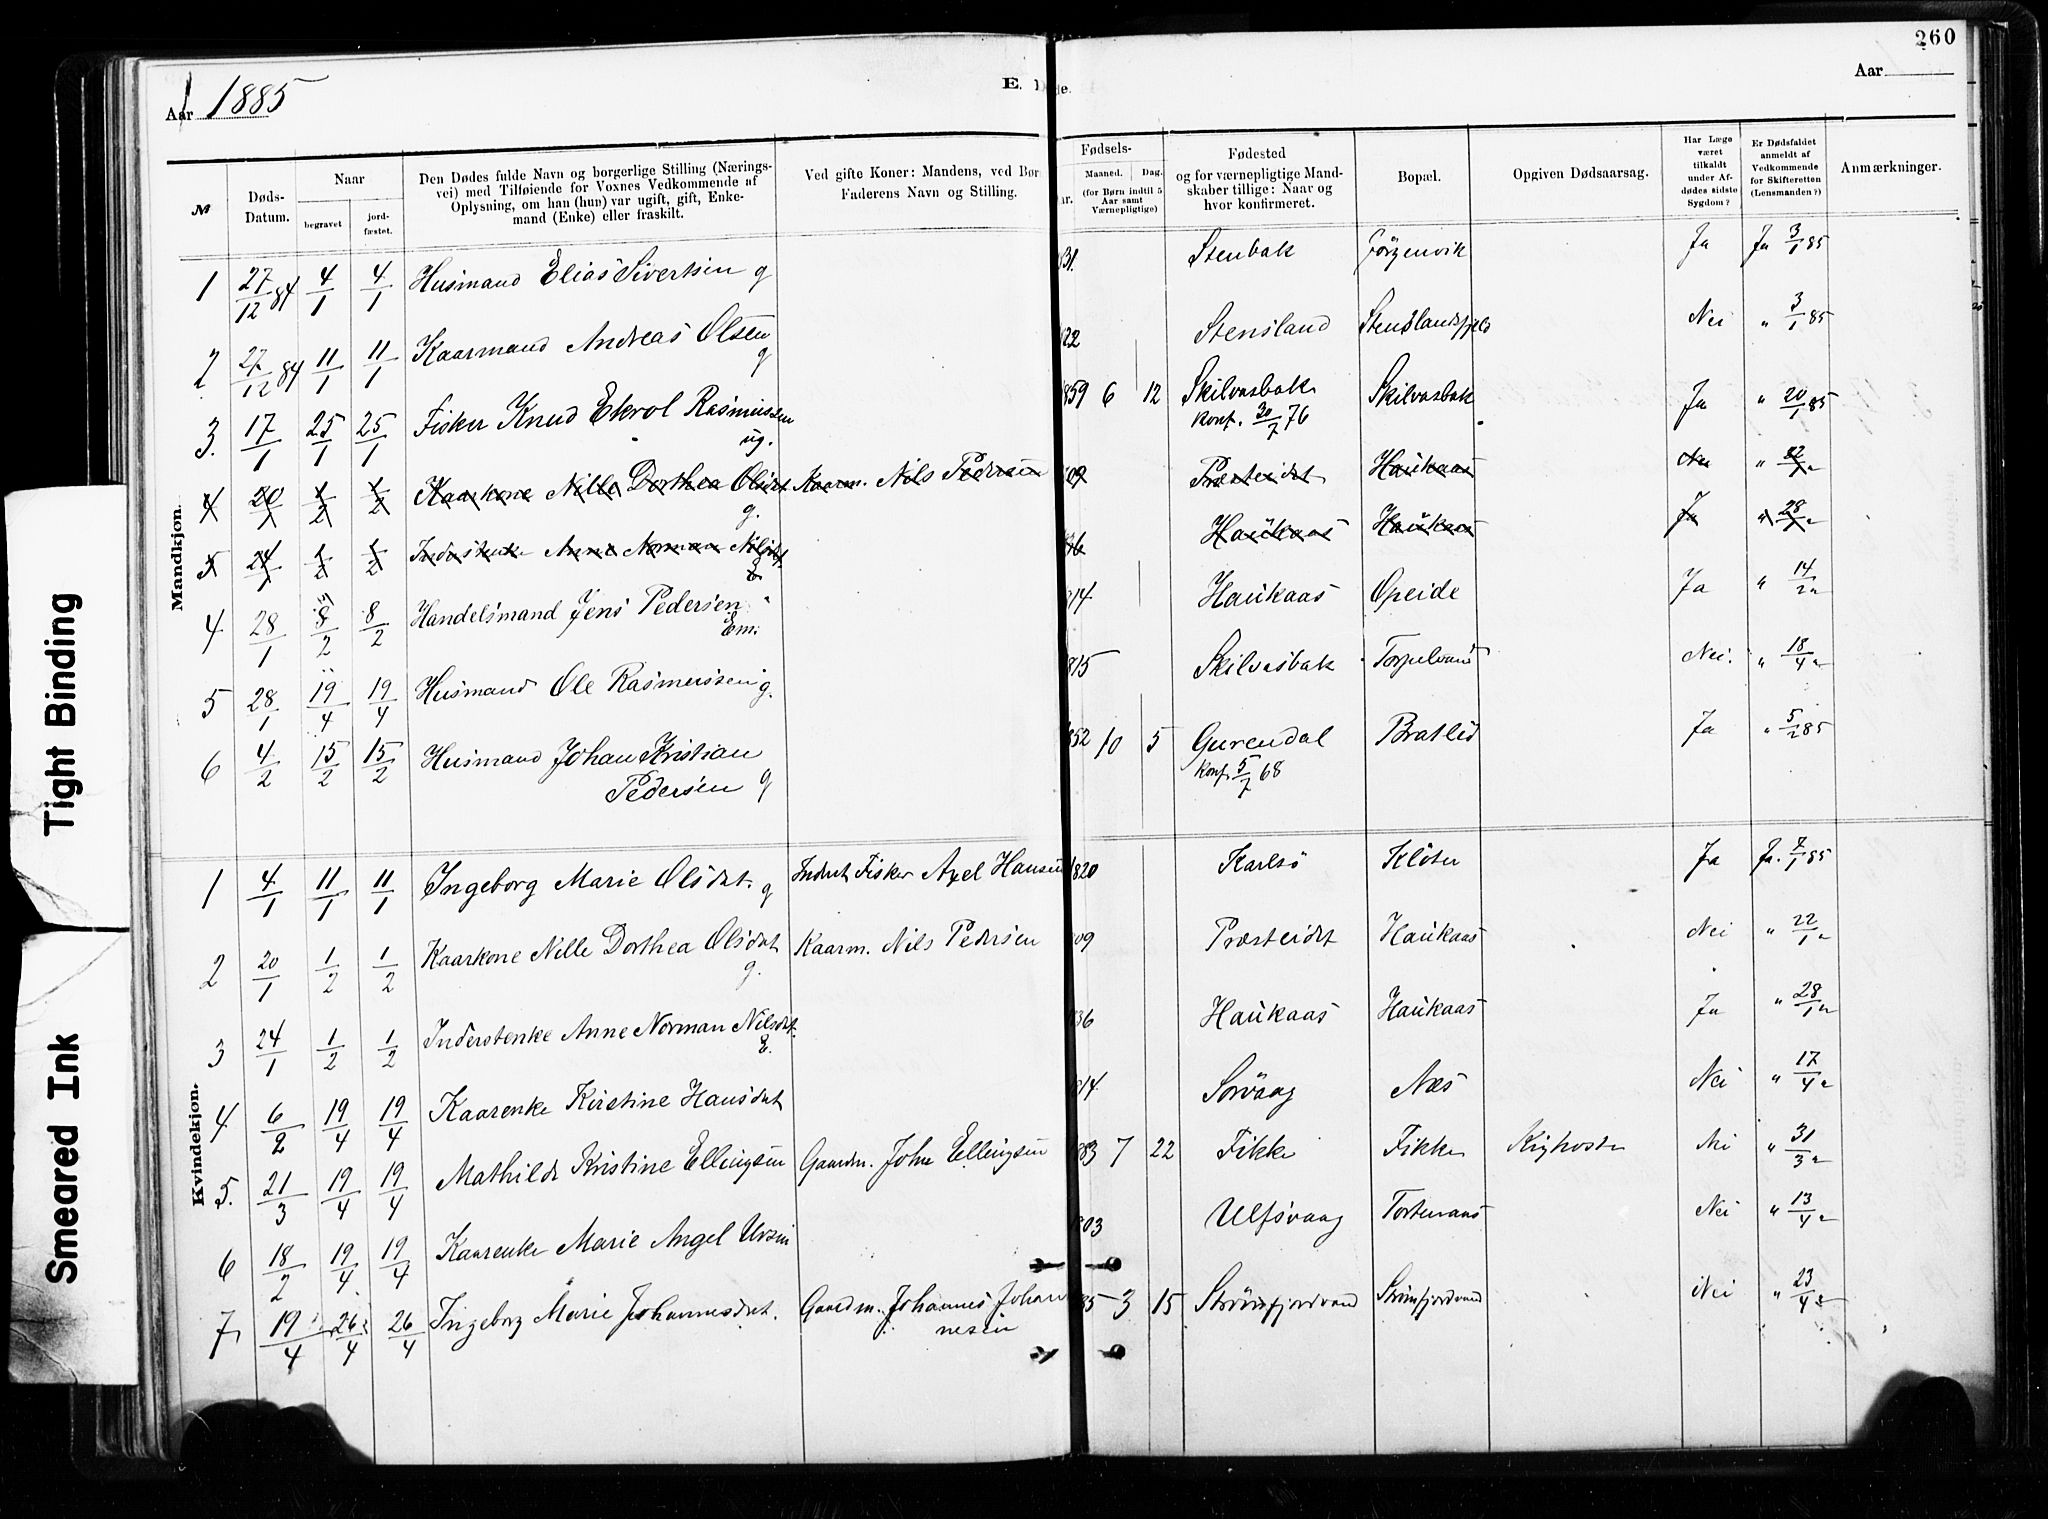 260
Aar 1885
E. Døde.
Aar
№
Døds-Datum.
Naar
begravet
jord-fæstet.
Den Dødes fulde Navn og borgerlige Stilling (Nærings-
vei) med Tilføiende for Voxnes Vedkommende af
Oplysning, om han (hun) var ugift, gift, Enke-
mand (Enke) eller fraskilt.
Ved gifte Koner: Mandens, ved Bør
Faderens Navn og Stilling.
Fødsels-
ar.
Maaned.
Dag.
(for Børn indtil 5
Aar samt
Værnepligtige)
Fødested
og for værnepligtige Mand-
skaber tillige: Naar og
hvor konfirmeret.
Bopæl.
Opgiven Dødsaarsag.
Har Læge
været
tilkaldt
under Af-
dødes sidste
Sygdom?
Er Dødsfaldet
anmeldt af
Vedkommende
for Skifteretten
(Lensmanden?)
Anmærkninger.
Mandkjøn.
1 27/12 84 4/1 4/1 Husmand Elias Sivertsen g 31. Stenbak Jørgenvik Ja Ja 3/1 85
2 27/12 84 11/1 11/1 Kaarmand Andreas Olsen g 22 Stensland Stenslandsfjeld Nei " 3/1 85
3. 17/1 25/1 25/1 Fisker Knud Ekrol Rasmussen ug. 859 6 12 Skilvasbak Skilvasbak Ja " 20/1 85
Konf. 30/7 76
4 20/1 1/2 1/2 Kaarkone Nille Dorthea Olsdat g. Kaarm. Nils Pedersen 09 Præsteidet Haukaas Nei " 22/1 "
5 24/1 1/2 1/2 Inderstenke Anne Norman Nilsdat. E 36 Haukaas Haukaas Ja " 28/1 "
4 28/1 8/2 8/2 Handelsmand Jens Pedersen Em. 814 Haukaas Opeide Ja " 14/2 "
5 28/1 19/4 19/4 Husmand Ole Rasmussen g. 815 Skilvasbak Nei. " 18/4 "
6 4/2 15/2 15/2 Husmand Johan Kristian 852 10 5 Gurendal Bratlid Ja " 5/2 85
Pedersen g Konf. 5/7 68
Kvindekjøn.
1 4/1 11/1 11/1 Ingeborg Marie Olsdat. g Inderst Fisker Axel Hansen 1820 Karlsö Kløter Ja Ja. 7/1 85
2 20/1 1/2 1/2 Kaarkone Nille Dorthea Olsdat g. Kaarm. Nils Pedersen 09 Præsteidet Haukaas Nei " 22/1 "
3 24/1 1/2 1/2 Inderstenke Anne Norman Nilsdat. E. 36 Haukaas Haukaas Ja " 28/1 "
4 6/2 19/4 19/4 Kaarenke Kirstine Hansdat 814. Sorvaag Næs Nei " 17/4 "
5. 21/3 19/4 19/4 Mathilde Kristine Ellingsen Gaardm. John Ellingsen 1883 7 22 Fikke Fikke Kighoste Nei " 31/3 "
6 18/2 19/4 19/4 Kaarenke Marie Angel Ursin 1803 Ulfsvaag Nei " 13/4 "
7 19/4 26/4 26/4 Ingeborg Marie Johannesdat. Gaardm. Johannes Johan 85 3 15 Strømfjordvand Strømfjordvand Nei " 23/4 "
nesen
Tight Binding
Smeared Ink